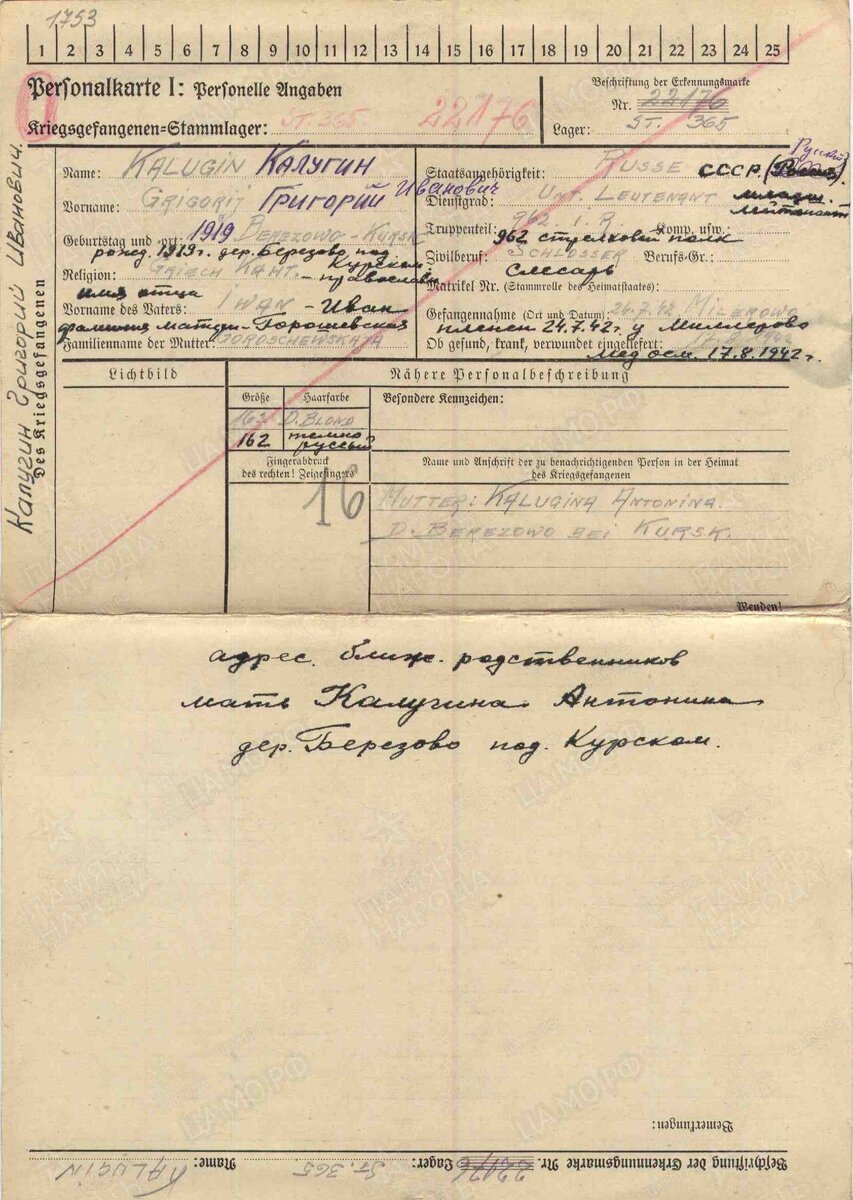 1753
1 2 3 4 5 6 7 8 9 10 11 12 13 14 15 16 17 18 19 20 21 22 23 24 25
Personalkarte I: Personelle Angaben
Kriegsgefangenen=Stammlager: ST. 365 22176
Beschriftung der Erkennungsmarke
Nr. 22176
Lager: ST. 365
Калугин Григорий Иванович.
Des Kriegsgefangenen
Name: KALUGIN Калугин
Vorname: GRIGORIJ Григорий Иванович
Geburtstag und =ort: 1919 BEREZOWO - KURSK
рожд. 1919 г. дер. Березово под Курском
Religion: GRIECH KATH. - православн
имя отца
Vorname des Vaters: IWAN - Иван
фамилия матери - Горошевская
Familienname der Mutter: GOROSCHEWSKAJA
Staatsangehörigkeit: RUSSE СССР Русский
Dienstgrad: UNT. LEUTENANT младш. лейтенант
Truppenteil: 962 I.R Komp. usw.:
962 стрелковый полк
Zivilberuf: SCHLOSSER Berufs=Gr.:
слесарь
Matrikel Nr. (Stammrolle des Heimatstaates):
Gefangennahme (Ort und Datum): 24.7.42 MILEROWO
пленен 24.7.42 г. у Миллерово
Ob gesund, krank, verwundet eingeliefert:
мед осм. 17.8.1942 г.
Lichtbild
Nähere Personalbeschreibung
Größe Haarfarbe
162 D. BLOND
162 темно русый
Besondere Kennzeichen:
Fingerabdruck
des rechten! Zeigefingers
16
Name und Anschrift der zu benachrichtigenden Person in der Heimat
des Kriegsgefangenen
MUTTER: KALUGINA ANTONINA.
D. BEREZOWO BEI KURSK.
Wenden!
адрес. ближ. родственников
мать Калугина Антонина
дер. Березово под. Курском.
Bemerkungen:
Beschriftung der Erkennungsmarke Nr. 22176 Lager: ST. 365 Name: KALUGIN
ПАМЯТЬ НАРОДА
ЦАМО.РФ